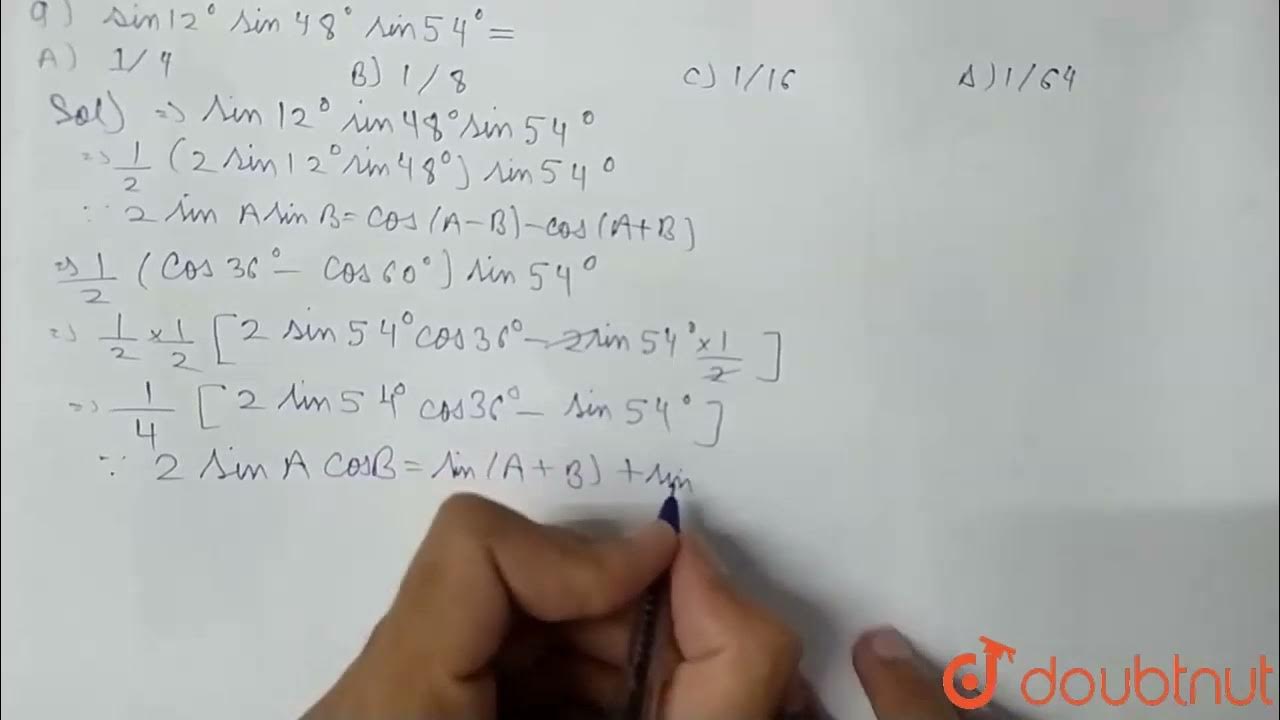 9) sin12° sin48° sin54°=
A) 1/4 B) 1/8 C) 1/16 D) 1/64
Sol) => sin12° sin48° sin54°
=> 1/2 (2 sin12° sin48°) sin54°
∵ 2 sin A sin B = cos(A-B)-cos(A+B)
=> 1/2 (cos36° - cos60°) sin54°
=> 1/2 × 1/2 [2 sin54° cos36° - 2 sin54° × 1/2]
=> 1/4 [2 sin54° cos36° - sin54°]
∵ 2 sin A cosB = sin(A+B) + sin
doubtnut